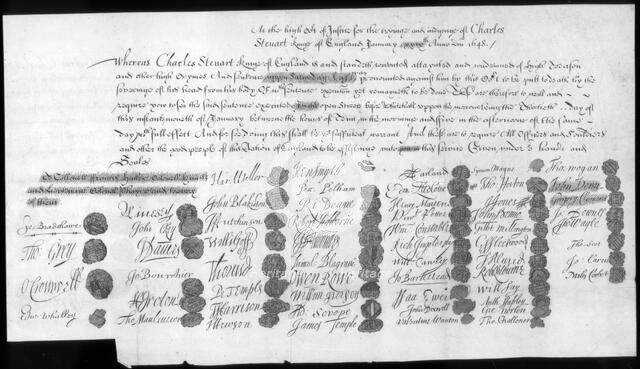 At the high Cot of Justice for the tryinge and iudginge of Charles
Steuart Kinge of England January xxixth Anno Dni 1648./
Whereas Charles Steuart Kinge of England is and standeth convicted attaynted and condemned of High Treason
and other high Crymes And sentence uppon Saturday last was pronounced against him by this Cot to be putt to death by the
severinge of his head from his body Of wch sentence execucon yet remayneth to be done These are therefore to will and
require you to see the said sentence executed In the open Streete before Whitehall uppon the morrowe being the Thirtieth day of
this instante moneth of January betweene the houres of Tenn in the morninge and Five in the afternoone of the same
day wth full effect And for soe doing this shall be yor sufficient warrant And these are to require All Officers and Souldiers
and other the good people of this Nation of England to be assistinge unto you in this service Given under or hands and
Seales
To Collonell Francis Hacker Colonell Huncks
and Lieutenant Colonell Phayre and to every
of them
Jo Bradshawe
Tho Grey
O Cromwell
Edw Whalley
M Livesey
John Okey
J Danvers
Jo Bourchier
H Ireton
Tho Mauleverer
Har Waller
John Blakiston
J Hutchinson
Willi Goff
Tho Pride
Pe Temple
T Harrison
J Hewson
Hen Smyth
Per Pelham
Ri Deane
Robert Tichborne
H Edwardes
Daniel Blagrave
Owen Rowe
William Purefoy
Ad Scrope
James Temple
A Garland
Edm Ludlowe
Henry Marten
Vinct Potter
Wm Constable
Rich Ingoldesby
Will Cawley
Jo Barkstead
Isaa Ewer
John Dixwell
Valentine Wauton
Symon Mayne
Tho Horton
J Jones
John Penne
Gilbt Millington
G Fleetwood
J Alured
Robt Lilburne
Will Say
Anth Stapley
Gre Norton
Tho Challoner
Tho Wogan
John Venn
Gregory Clement
Jo Downes
Tho Wayte
Tho Scot
Jo Carew
Miles Corbet